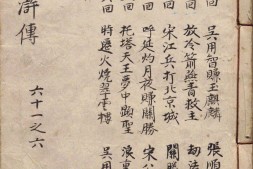 回 吳用智賺玉麒麟 張順
回 放冷箭燕青救主 劫法
回 宋江兵打北京城 關勝
回 呼延灼月夜賺關勝 宋公
回 托塔天王夢中顯聖 浪裏
回 時遷火燒翠雲樓 吳用
六十一之六
滸傳